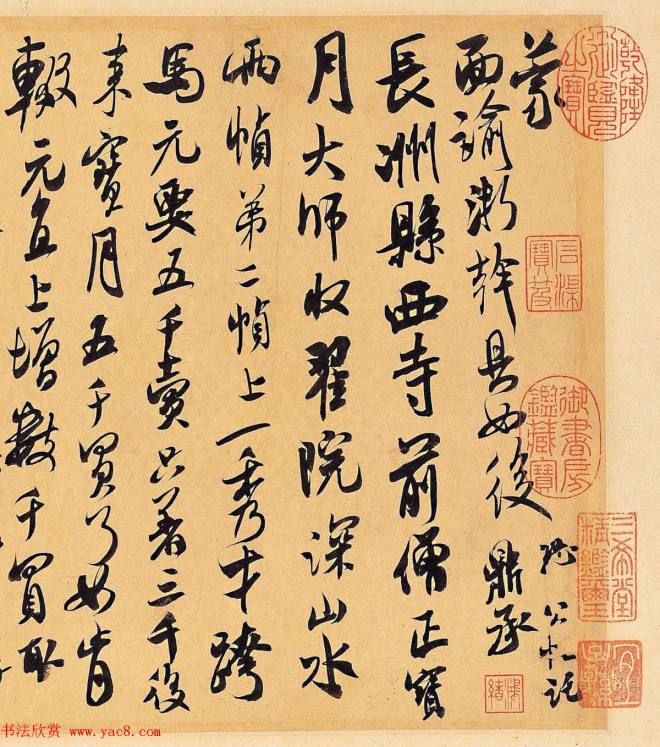 蒙
面諭浙幹具如後 鼎丞
恐公忙記
長洲縣西寺前僧正寶
月大師收翟院深山水
兩幀第二幀上一秀才跨
馬元要五千賣只著三千後
來寶月五千買了如肯
輟元直上增數千買取
乾隆御覽之寶
石渠寶笈
御書房鑑藏寶
三希堂精鑑璽
宜子孫
书法欣赏 www.yac8.com